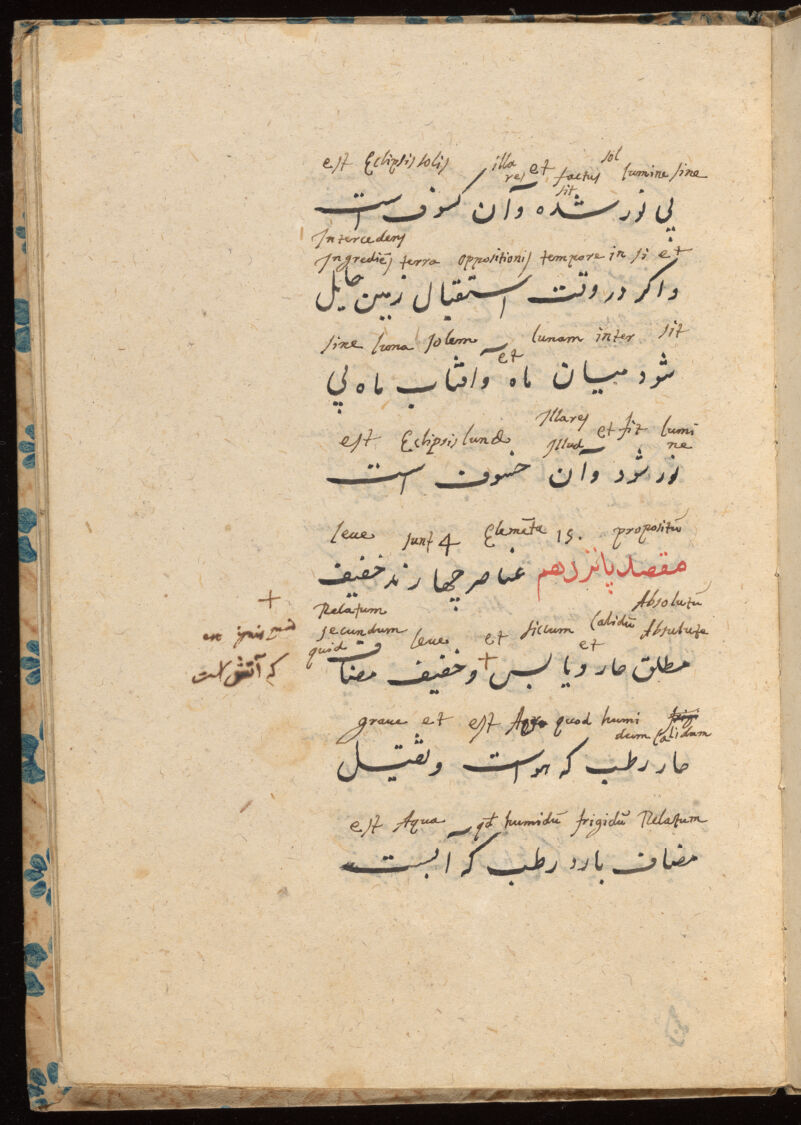 est Eclipsis solis illa res et factus sit sol lumine sine
بي نور شده وآن كسوف است
Intercedens
Ingrediēs terra oppositionis tempore in si et
واكر در وقت استقبال زمين حايل
sine luna solem et lunam inter sit
شود ميان ماه وآفتاب ماه بي
est Eclipsis lunæ Illa res Illud et fit lumi
ne
نور شود وآن خسوف است
leue sunt 4 Elemēta 15. propositū
مقصد پانزدهم عناصر چهارند خفيف
+
Relatum Absolutū
secundum quid leue et siccum et Calidū Absolute
مطلق حار ويابس + وخفيف مضاف
كه آتش است
graue et est quod humi
dum Calidum
حار رطب كه هواست وثقيل
est Aqua qd humidū frigidū Relatum
مضاف بارد رطب كه آبست